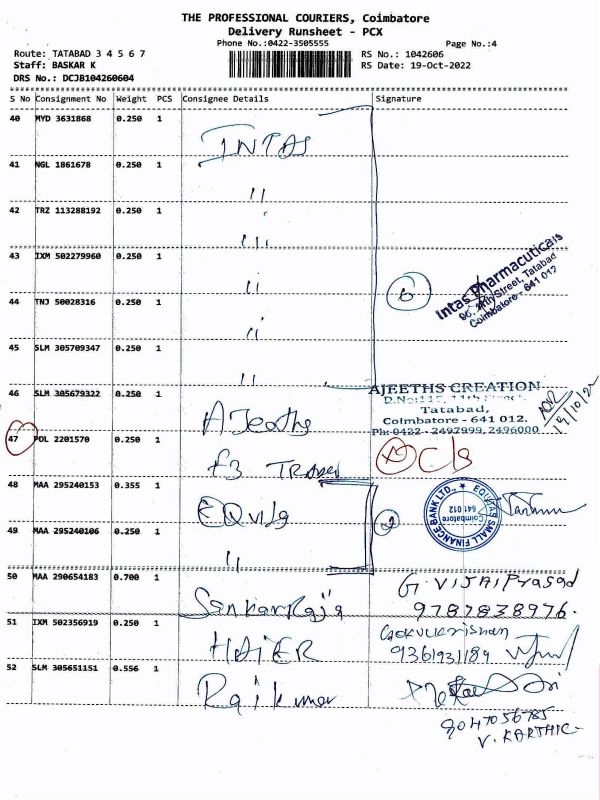 THE PROFESSIONAL COURIERS, Coimbatore
Delivery Runsheet - PCX
Phone No.:0422-3505555
Page No.:4
Route: TATABAD 3 4 5 6 7
RS No.: 1042606
Staff: BASKAR K
RS Date: 19-Oct-2022
DRS No.: DCJB104260604
S No Consignment No Weight PCS Consignee Details Signature
40 MYD 3631868 0.250 1
INTAS
41 NGL 1861678 0.250 1
"
42 TRZ 113288192 0.250 1
"
43 IXM 502279960 0.250 1
"
44 TNJ 50028316 0.250 1
"
45 SLM 305709347 0.250 1
"
6
Intas Pharmaceuticals
96, 11th Street, Tatabad
Coimbatore - 641 012
46 SLM 305679322 0.250 1
AJeeths
AJEETHS CREATION
Tatabad,
Coimbatore - 641 012.
Ph: 0422 - 2497999, 2496000
47 POL 2201570 0.250 1
F3
C/s
48 MAA 295240153 0.355 1
49 MAA 295240106 0.250 1
"
2
EQUITAS SMALL FINANCE BANK LTD.,
Coimbatore
641 012
50 MAA 290654183 0.700 1
G. VIJAI Prasad
9787838976.
51 IXM 502356919 0.250 1
HAIER
Gokulkrishnan
9361931189
52 SLM 305651151 0.556 1
Rajkumar
9047056785
V. KARTHIC